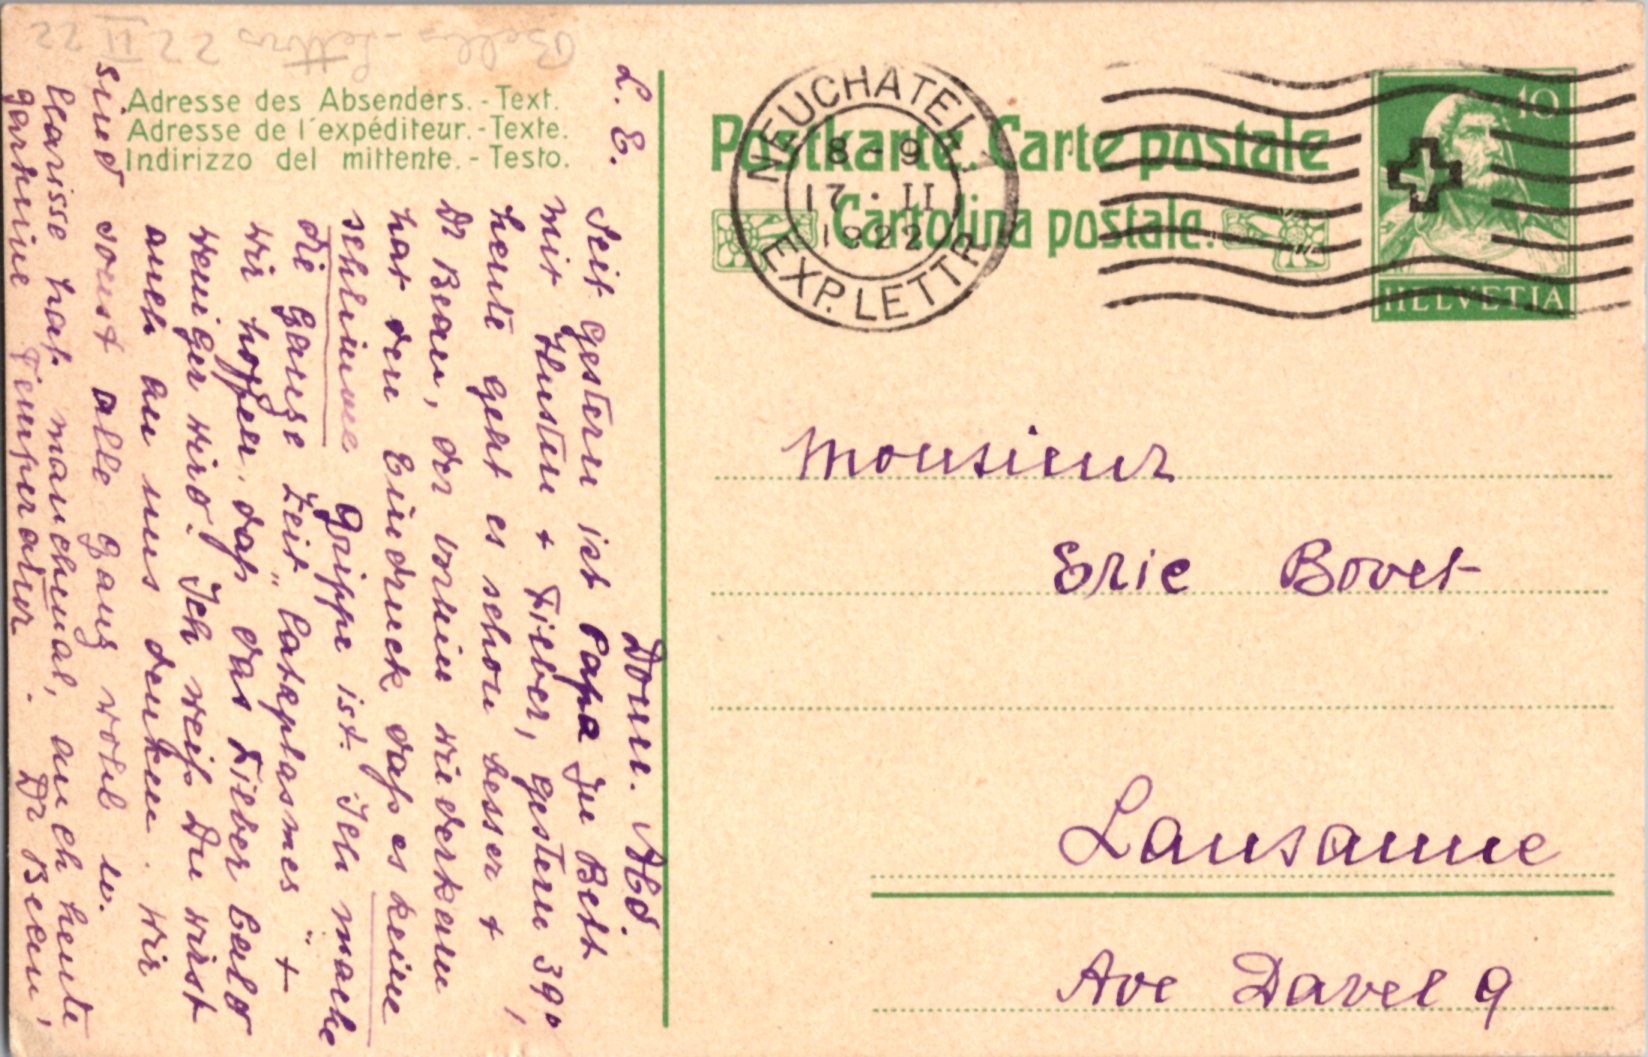 Belles-Lettres 22 II 22
Adresse des Absenders. - Text.
Adresse de l'expéditeur. - Texte.
Indirizzo del mittente. - Testo.
Postkarte. Carte postale
Cartolina postale.
NEUCHATEL 1
8-9
17.II
1922
EXP. LETTR.
10
HELVETIA
Monsieur
Eric Bovet
Lausanne
Ave Davel 9
Donn. Abd.
L. E.
Seit gestern ist Papa zu Bett
mit Husten + Fieber, gestern 39°,
heute geht es schon besser +
Dr Beau, der vorhin wiederkam
hat den Eindruck dass es keine
schlimme Grippe ist. Ich mache
die ganze Zeit "Cataplasmes" +
wir hoffen, dass das Fieber bald
weniger wird. Ich weiss Du wirst
auch an uns denken. Wir
sind sonst alle ganz wohl u.
Clarisse hat manchmal, auch heute
gar keine Temperatur. Dr Beau,